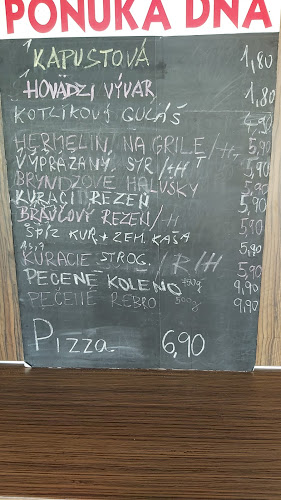 PONUKA DŇA
1 KAPUSTOVÁ 1,80
1 HOVÄDZÍ VÝVAR 1,80
KOTLÍKOVÝ GULÁŠ 4,90
HERMELÍN, NA GRILE/H 5,90
VYPRÁŽANÝ SYR/+H T 5,90
BRYNDZOVÉ HALUŠKY 5,90
KURACÍ REZEŇ 5,90
BRAVČOVÝ REZEŇ/H 5,90
ŠPÍZ KUR.+ZEM. KAŠA 5,90
KURACIE STROG. /R/H 5,90
PEČENÉ KOLENO 9,90
PEČENÉ REBRO 500g 9,90
Pizza 6,90